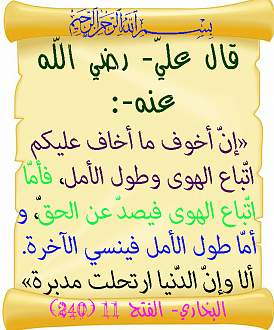 بسم الله الرحمن الرحيم
قال عليّ- رضي اللّه
عنه-:
«إنّ أخوف ما أخاف عليكم
اتّباع الهوى وطول الأمل، فأمّا
اتّباع الهوى فيصدّ عن الحقّ، و
أمّا طول الأمل فينسي الآخرة.
ألا وإنّ الدّنيا ارتحلت مدبرة»
البخاري- الفتح 11 (240)